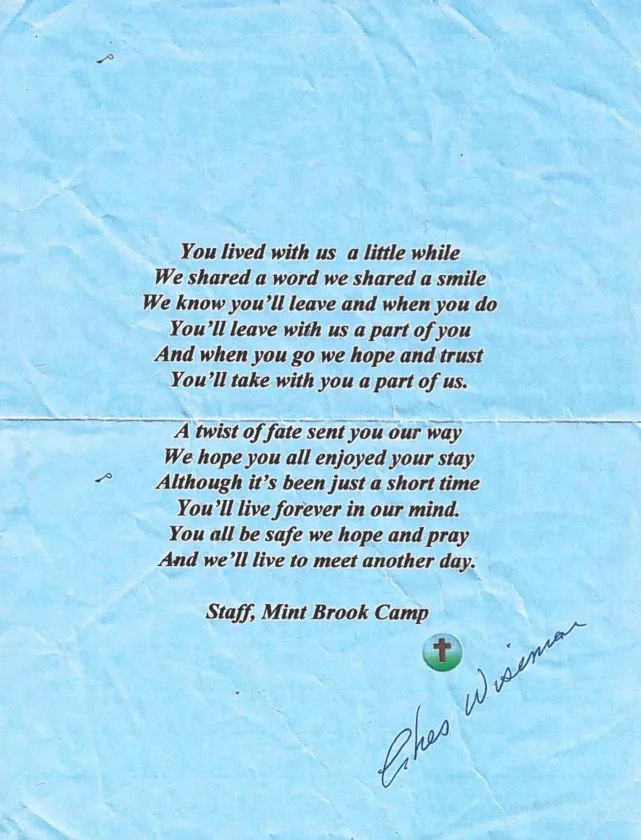 You lived with us a little while
We shared a word we shared a smile
We know you'll leave and when you do
You'll leave with us a part of you
And when you go we hope and trust
You'll take with you a part of us.
A twist of fate sent you our way
We hope you all enjoyed your stay
Although it's been just a short time
You'll live forever in our mind.
You all be safe we hope and pray
And we'll live to meet another day.
Staff, Mint Brook Camp
Ches Wiseman